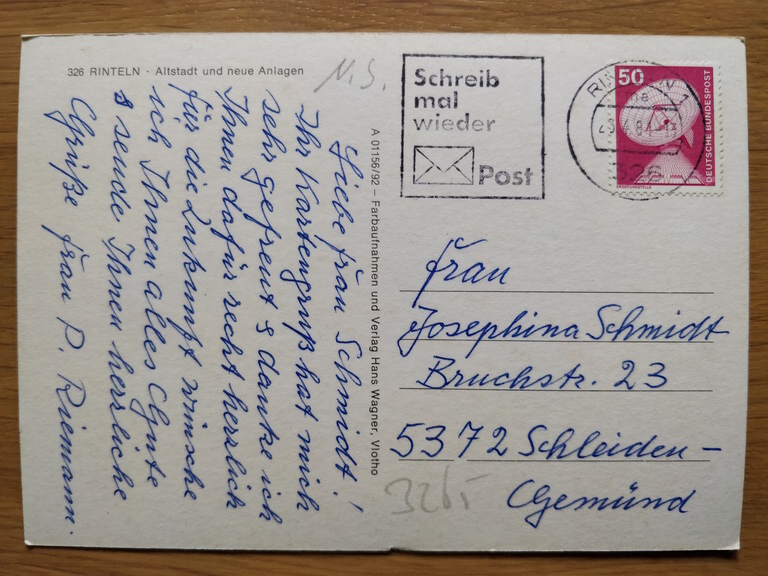 326 RINTELN · Altstadt und neue Anlagen
N.S.
Liebe Frau Schmidt!
Ihr Kartengruß hat mich
sehr gefreut & danke ich
Ihnen dafür recht herzlich
für die Zukunft wünsche
ich Ihnen alles Gute
& sende Ihnen herzliche
Grüße Frau P. Riemann.
A 01156/92 – Farbaufnahmen und Verlag Hans Wagner, Vlotho
Schreib
mal
wieder
Post
50
DEUTSCHE BUNDESPOST
Frau
Josephina Schmidt
Bruchstr. 23
5372 Schleiden-
Gemünd